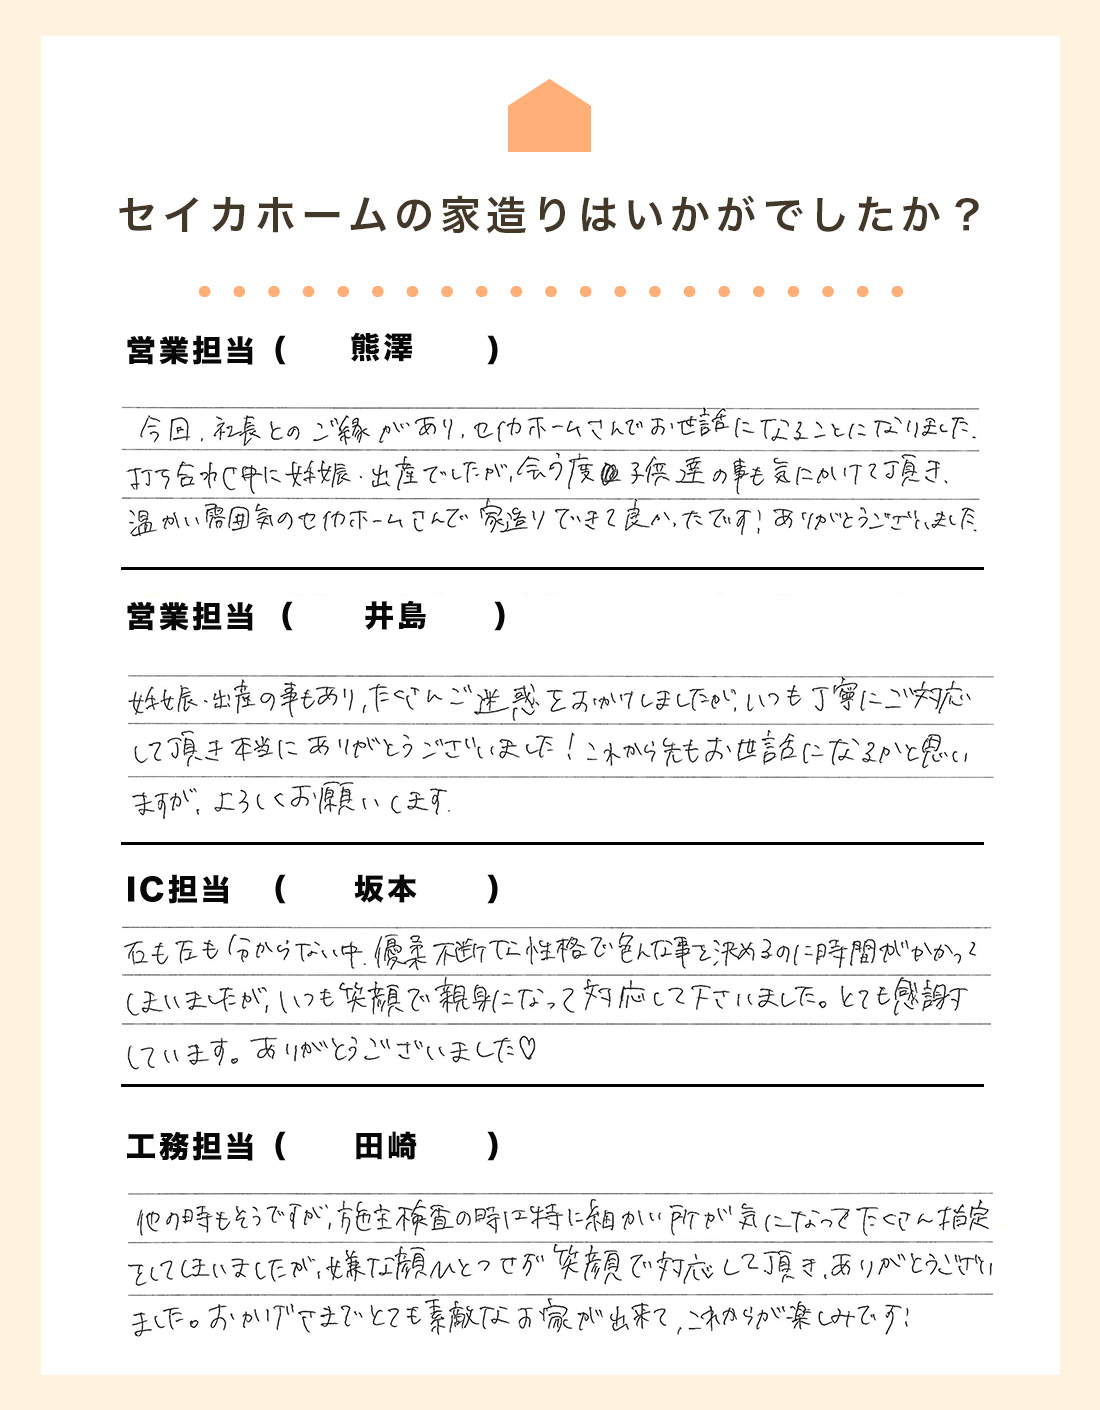 セイカホームの家造りはいかがでしたか？
営業担当（　熊澤　）
今回、社長とのご縁があり、セイカホームさんでお世話になることになりました。
打ち合わせ中に妊娠・出産でしたが、会う度子供達の事も気にかけて頂き、
温かい雰囲気のセイカホームさんで家造りできて良かったです！ありがとうございました
営業担当（　井島　）
妊娠・出産の事もあり、たくさんご迷惑をおかけしましたが、いつも丁寧にご対応
して頂き本当にありがとうございました！これから先もお世話になるかと思い
ますが、よろしくお願いします。
IC担当（　坂本　）
右も左も分からない中、優柔不断な性格で色んな事を決めるのに時間がかかって
しまいましたが、いつも笑顔で親身になって対応して下さいました。とても感謝す
しています。ありがとうございました♡
工務担当（　田崎　）
他の時もそうですが、施主検査の時は特に細かい所が気になってたくさん指定
をしてしまいましたが、嫌な顔ひとつせず笑顔で対応して頂き、ありがとうござい
ました。おかげさまでとても素敵なお家が出来て、これからが楽しみです！